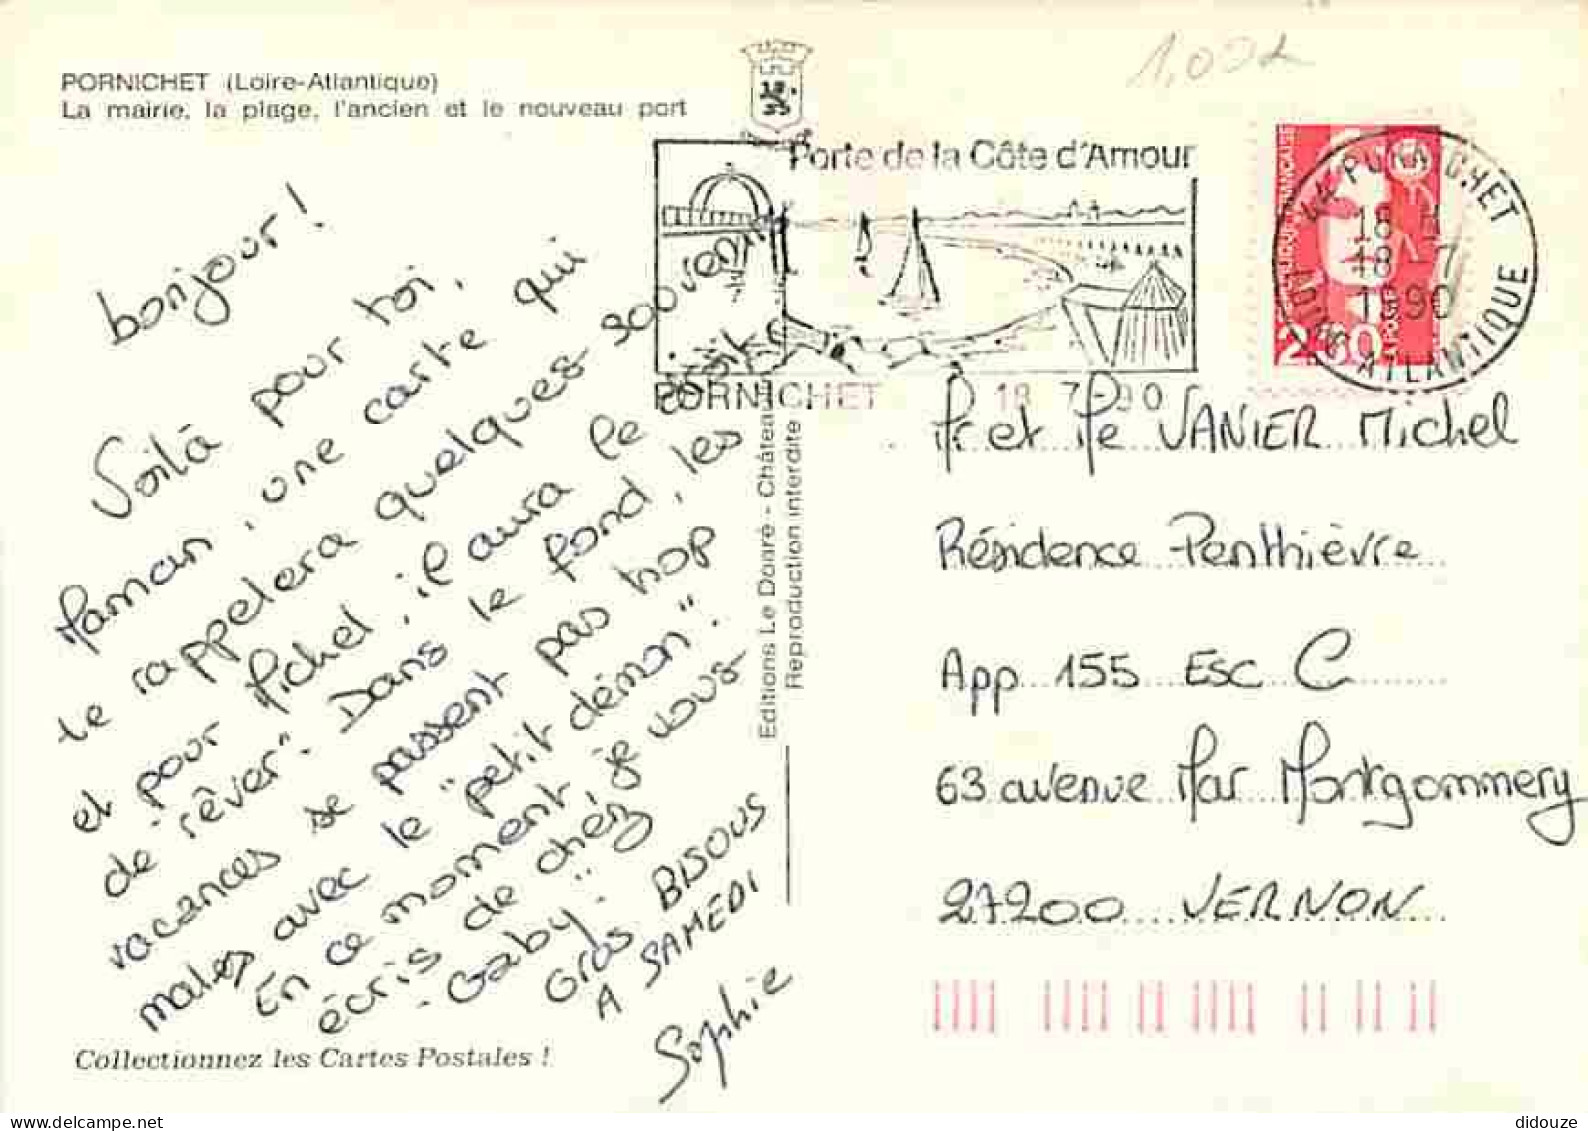 PORNICHET (Loire-Atlantique)
La mairie, la plage, l'ancien et le nouveau port
1,00
Porte de la Côte d'Amour
PORNICHET 18 7-90
18 H
18 - 7
1990
LOIRE ATLANTIQUE
2.30
bonjour !
Voilà pour toi,
Maman, une carte qui
te rappelera quelques souvenirs
et pour Michel, il aura le droit
de "rêver". Dans le fond, les
vacances se passent pas trop
mal avec le "petit démon".
En ce moment, je vous
écris de "chez
Gaby".
Gros BISOUS
A SAMEDI
Sophie
Editions Le Doaré - Château
Reproduction interdite
Mr et Me VANIER Michel
Résidence Penthièvre
App 155 Esc C
63 avenue Mar Montgommery
27200 VERNON
Collectionnez les Cartes Postales !
delcampe.net
didouze